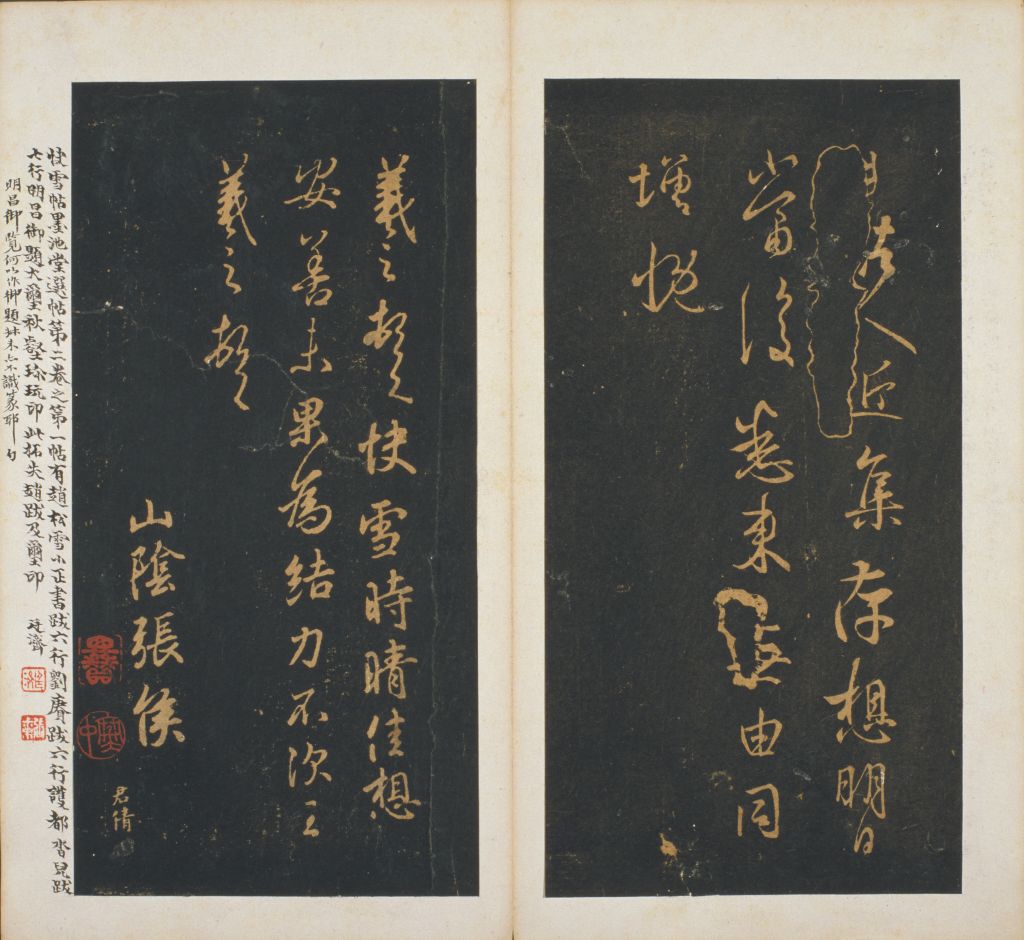 人近集存想明日
當復悉來無由同
增慨
羲之頓首快雪時晴佳想
安善未果為結力不次王
羲之頓首
山陰張侯
君倩
快雪帖墨池堂選帖第二卷之第一帖有趙松雪小正書跋六行劉賡跋六行護都沓兒跋
七行明昌御題大璽秋壑珍玩印此拓失趙跋及璽印 廷濟
明昌御覽何以作御題叔未亦不識篆耶